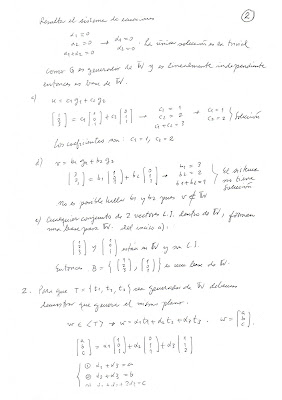 2
Resulta el sistema de ecuaciones
α1 = 0
α2 = 0 → α1 = 0 La única solución es la trivial
α1 + α2 = 0 α2 = 0
como B es generador de W y es linealmente independiente
entonces es base de W.
c) u = c1 g1 + c2 g2
[1 2 3] = c1 [1 0 1] + c2 [0 1 1] → c1 = 1 c2 = 2 c1 + c2 = 3 → c1 = 1 c2 = 2 } Solución
Los coeficientes son: c1 = 1, c2 = 2
d) v = b1 g1 + b2 g2
= b1 [1 0 1] + b2 [0 1 1] → } El sistema no tiene solución
No es posible hallar b1 y b2 pues v ∉ W
e) Cualquier conjunto de 2 vectores L.I. dentro de W, forman
una base para W.
y están en W y son L.I.
Entonces B = { , } es una base de W.
2. Para que T = {t1, t2, t3} sea generador de W debemos
demostrar que genera el mismo plano.
w ∈ <T> → w = α1 t1 + α2 t2 + α3 t3. w = [a b c]
[a b c] = α1 [1 0 1] + α2 [0 1 1] + α3 [1 1 2]
① α1 + α3 = a
② α2 + α3 = b